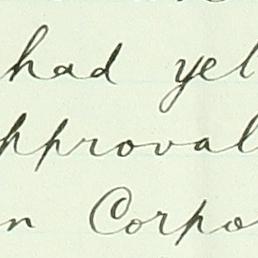 had yet
approval
n Corpo